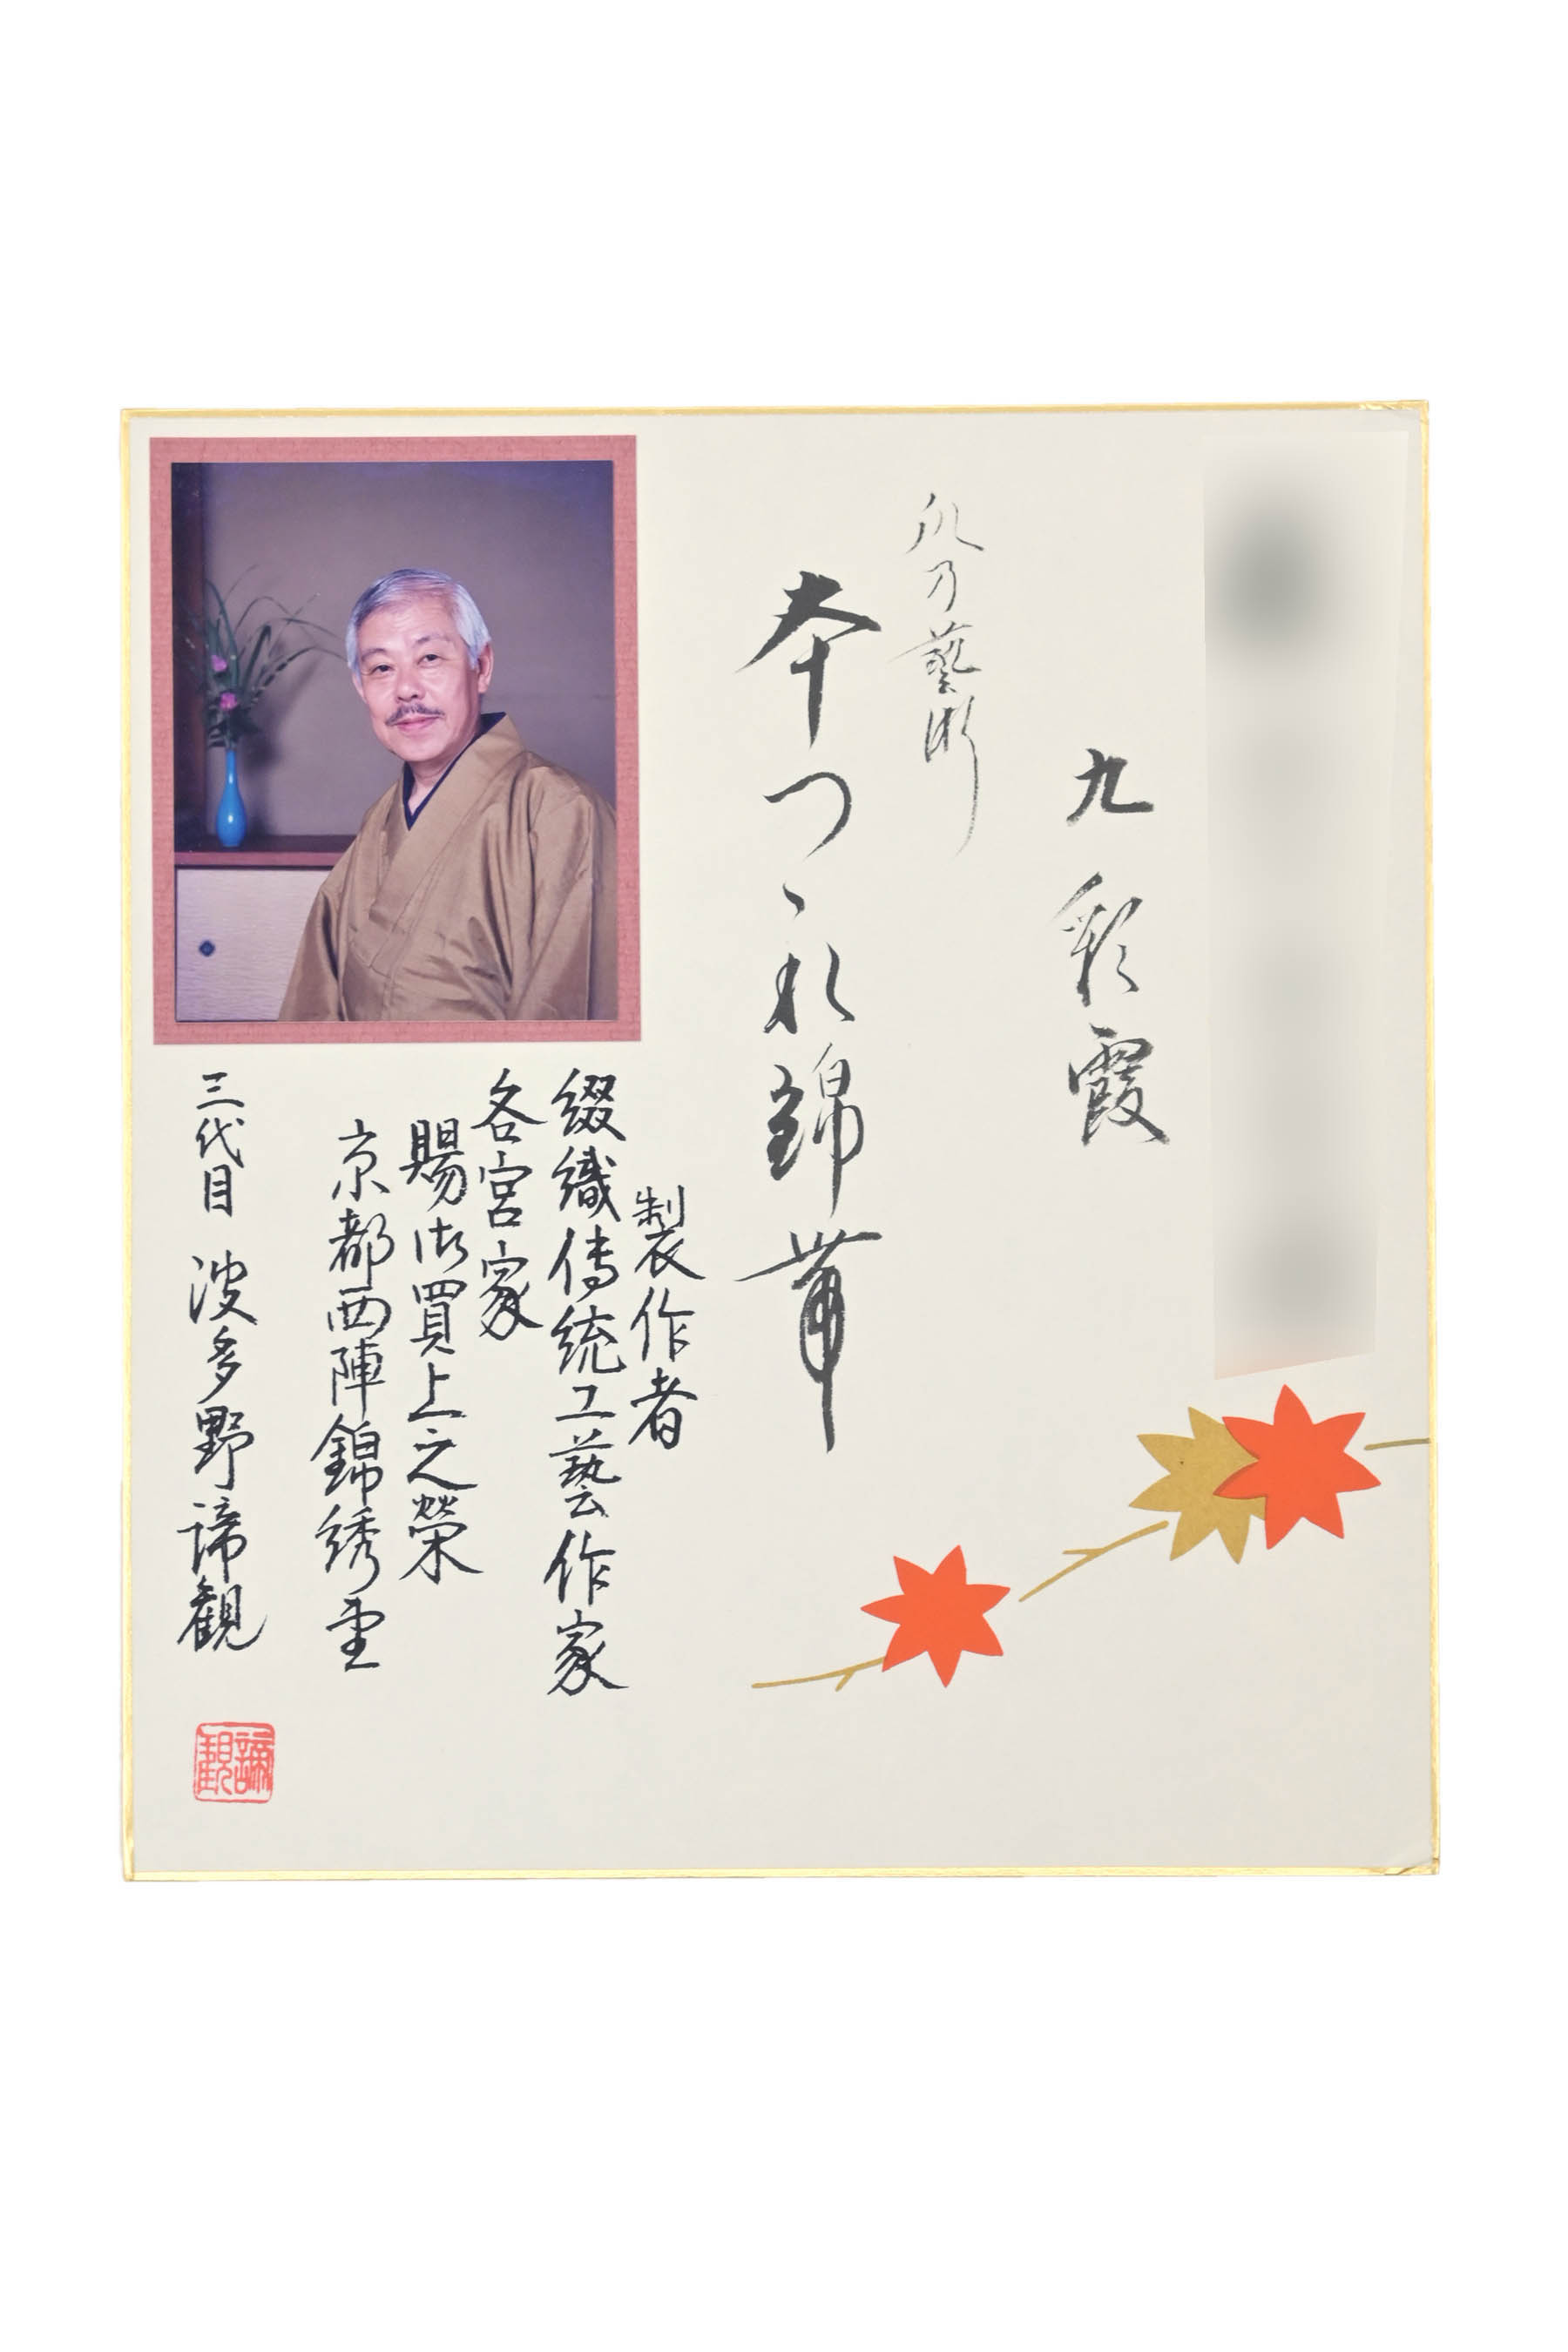 九彩霞
爪乃藝術
本つゝれ錦帯
製作者
綴織伝統工藝作家
各宮家
賜御買上之榮
京都西陣錦綉堂
三代目 波多野諦観
諦観